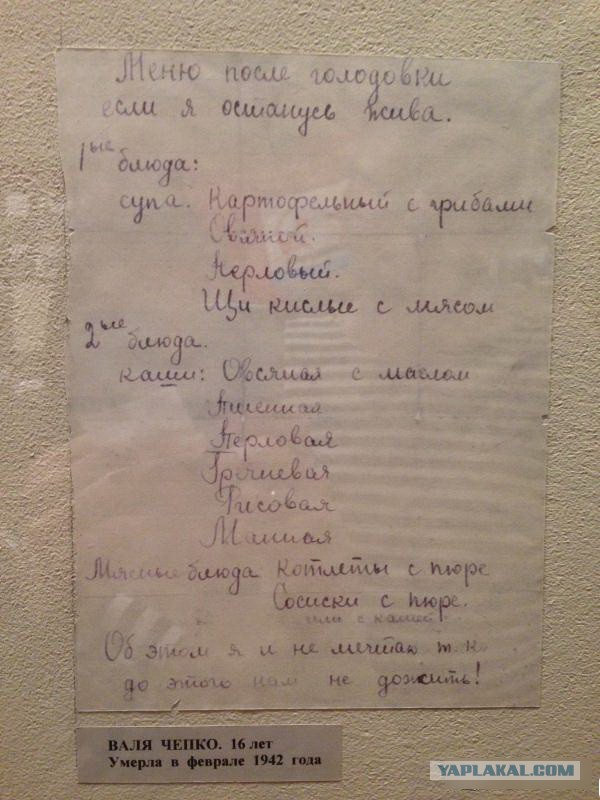 Меню после голодовки
если я останусь жива.
1ые блюда:
супа. Картофельный с грибами
Овсяной.
Перловый.
Щи кислые с мясом
2ые блюда.
каши: Овсяная с маслом
Пшенная
Перловая
Гречневая
Рисовая
Манная
Мясные блюда Котлеты с пюре
Сосиски с пюре.
или с кашей
Об этом я и не мечтаю т.к.
до этого нам не дожить!
ВАЛЯ ЧЕПКО. 16 лет
Умерла в феврале 1942 года
YAPLAKAL.COM